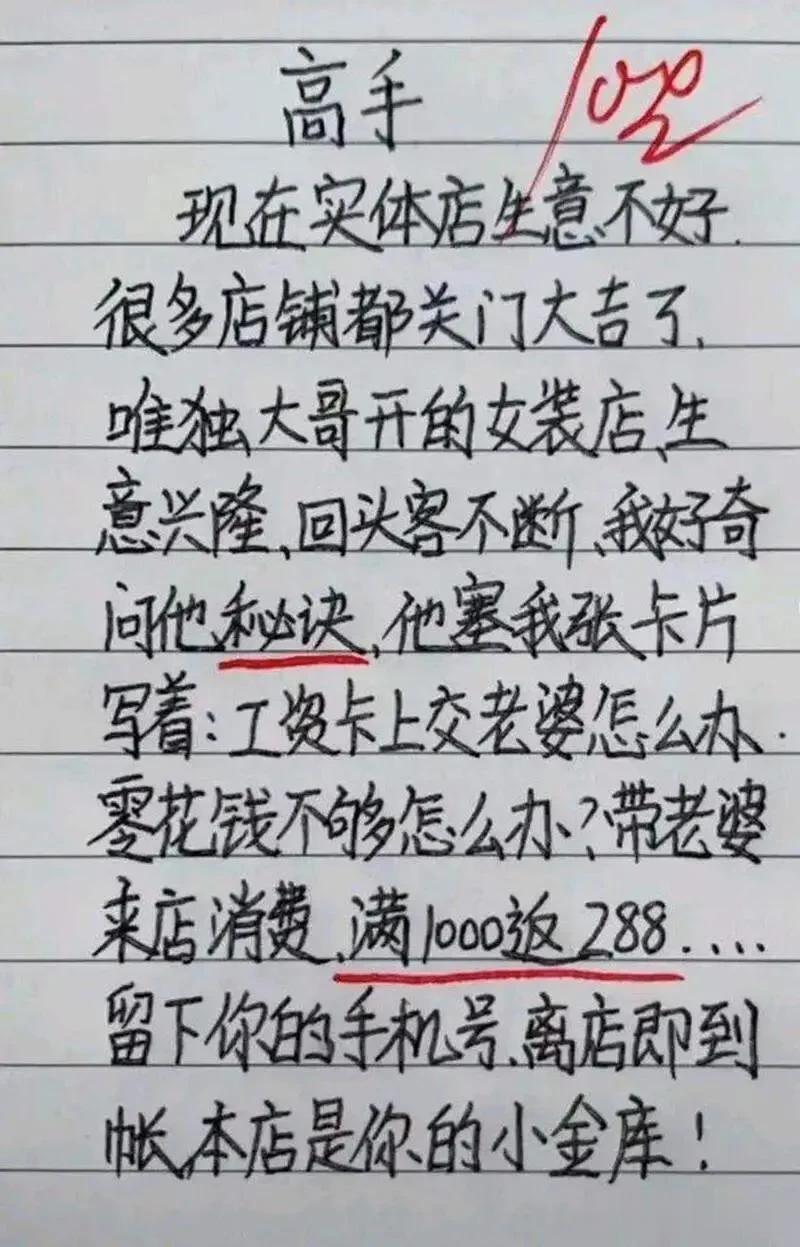 高手
100
现在实体店生意不好.
很多店铺都关门大吉了,
唯独大哥开的女装店、生
意兴隆、回头客不断、我好奇
问他秘诀,他塞我张卡片
写着:工资卡上交老婆怎么办.
零花钱不够怎么办?带老婆
来店消费、满1000返288....
留下你的手机号、离店即到
帐,本店是你的小金库!